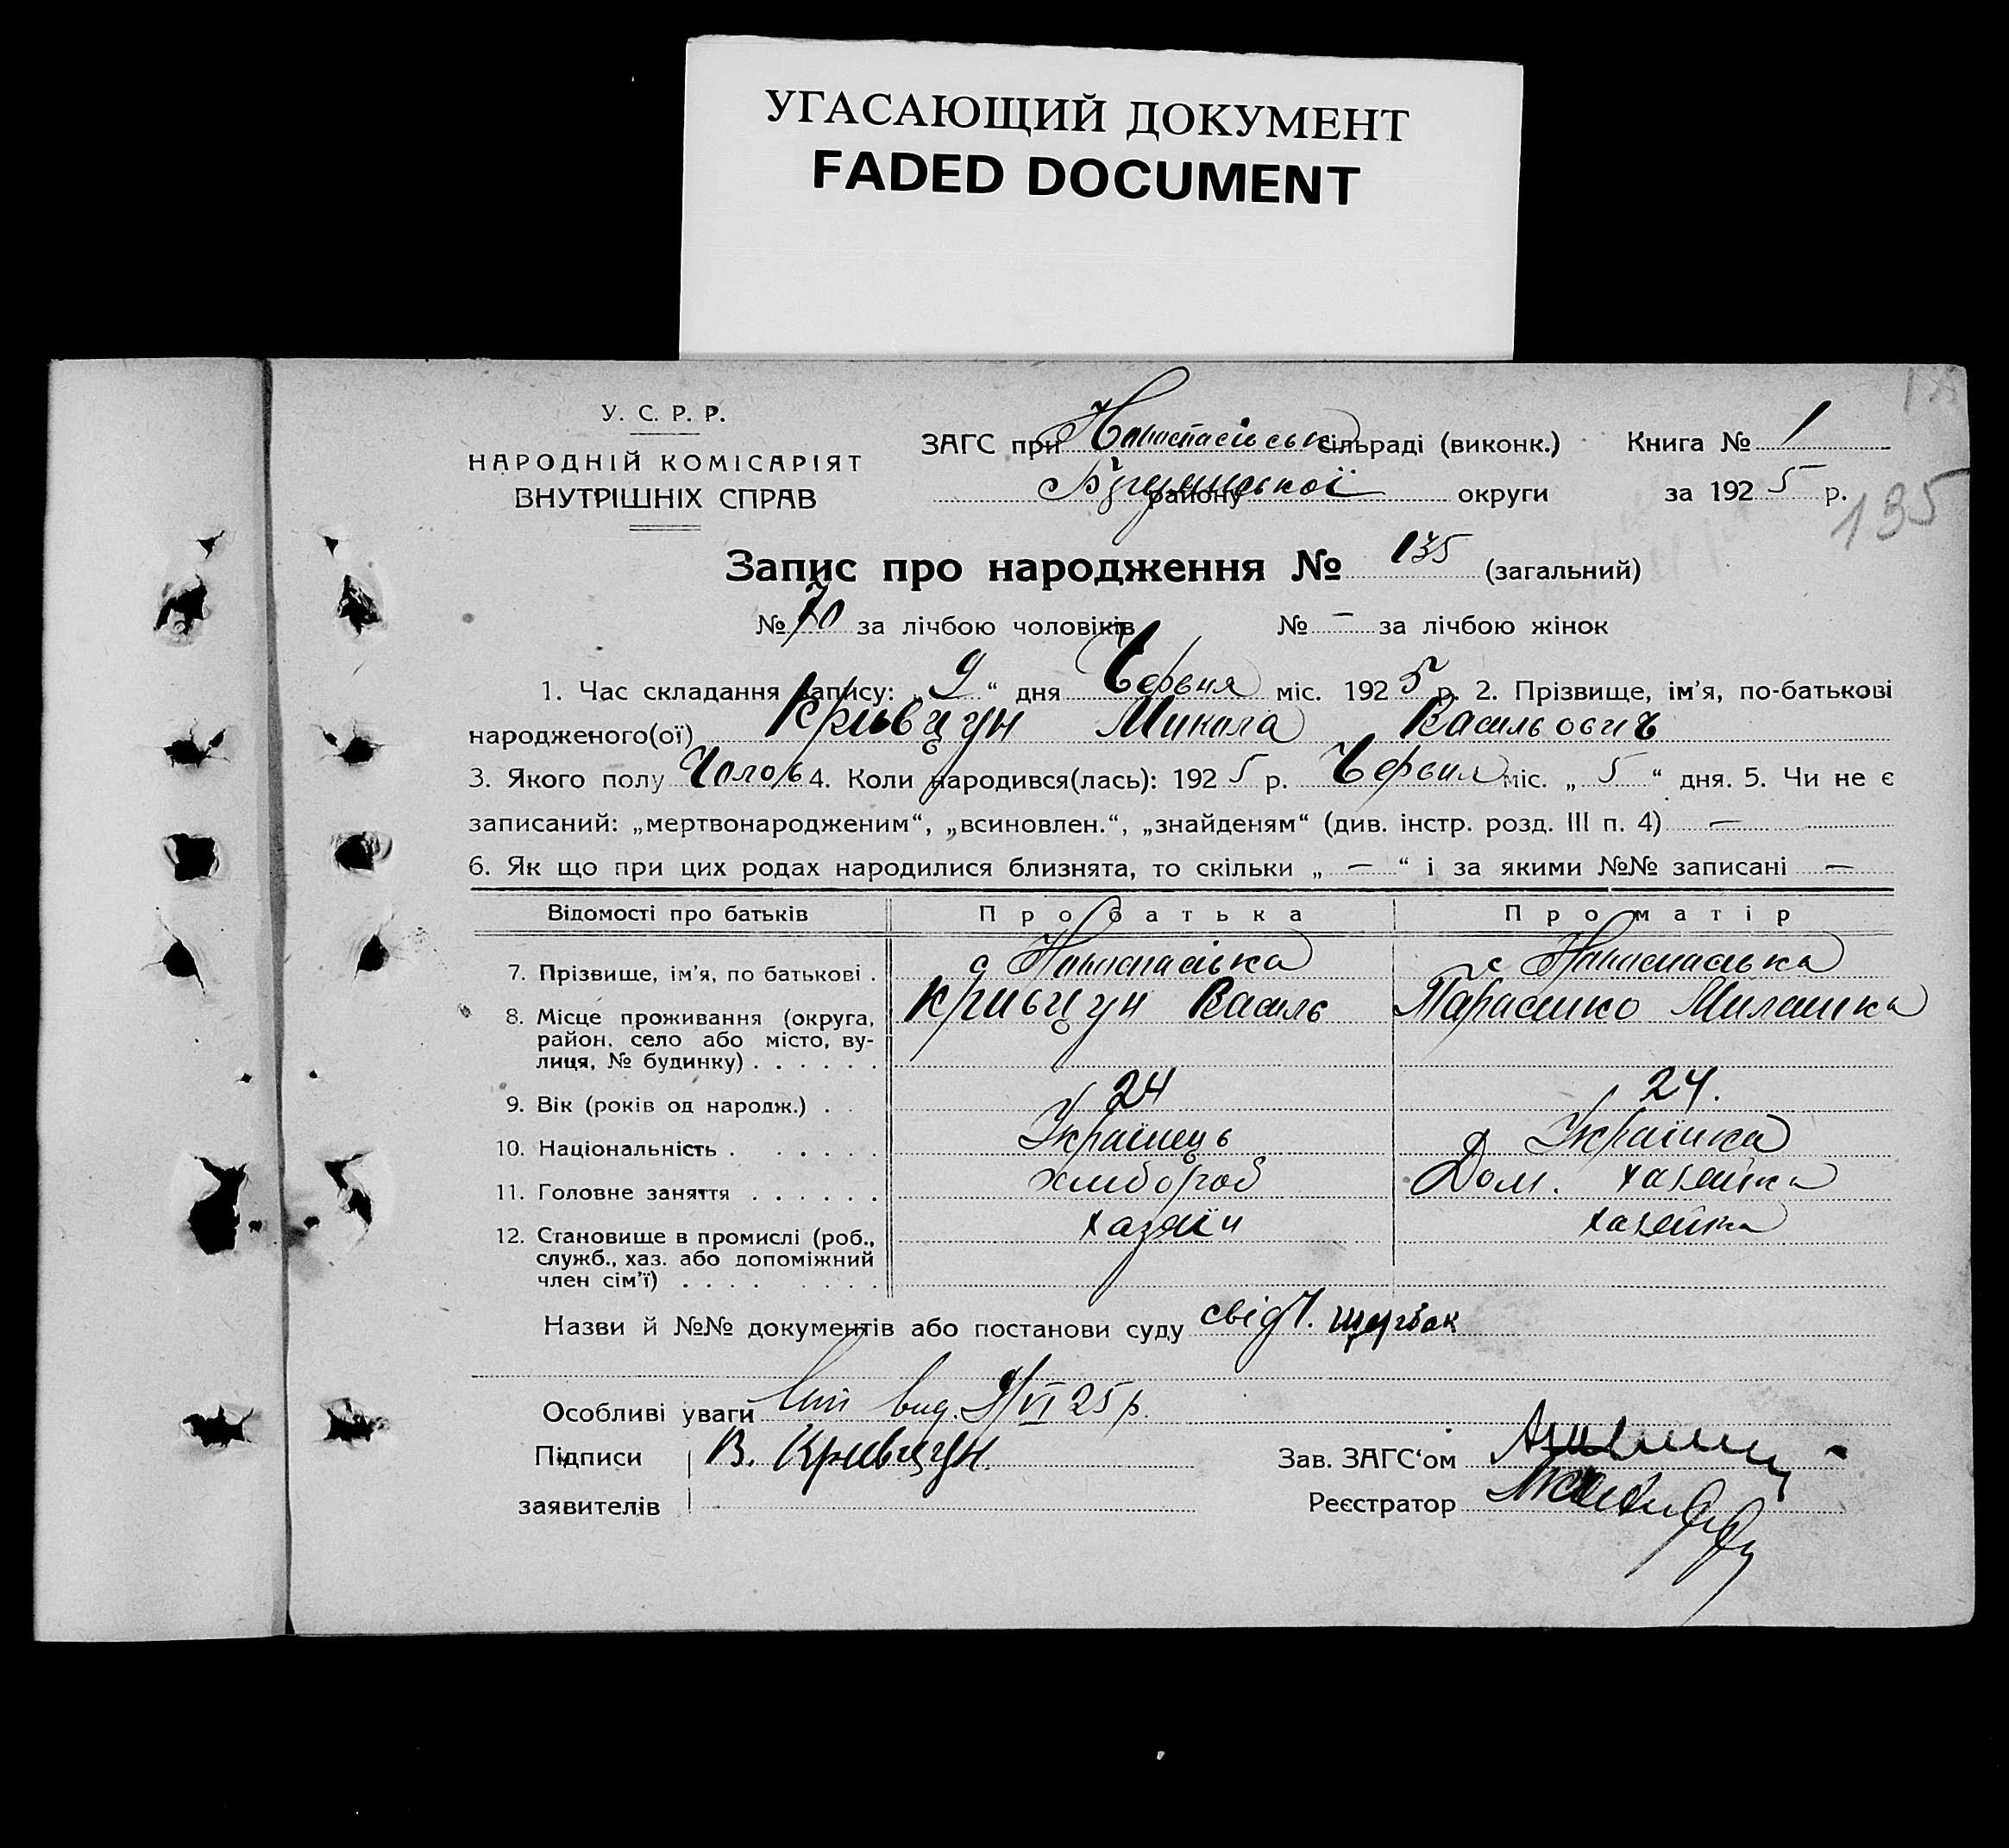 УГАСАЮЩИЙ ДОКУМЕНТ
FADED DOCUMENT
У. С. Р. Р.
НАРОДНІЙ КОМІСАРІЯТ
ВНУТРІШНІХ СПРАВ
ЗАГС при сільраді (виконк.) Книга № 1
району округи за 1925 р.
135
Запис про народження № 135 (загальний)
№ 70 за лічбою чоловіків № — за лічбою жінок
1. Час складання запису: „9“ дня Червня міс. 1925 р. 2. Прізвище, ім’я, по-батькові
народженого(ої) Кривцун Микола Васильович
3. Якого полу Чолов 4. Коли народився(лась): 1925 р. Червня міс. „5“ дня. 5. Чи не є
записаний: „мертвонародженим“, „всиновлен.“, „знайденям“ (див. інстр. розд. III п. 4) —
6. Як що при цих родах народилися близнята, то скільки „—“ і за якими №№ записані —
Відомості про батьків Про батька Про матір
7. Прізвище, ім’я, по батькові .
8. Місце проживання (округа, Кривцун Василь Парасишко Милашка
район, село або місто, ву-
лиця, № будинку) . . . . . .
9. Вік (років од народж.) . . 24 24.
10. Національність . . . . . . Українець Українка
11. Головне заняття . . . . . . хлибороб Дом. хазейка
12. Становище в промислі (роб., хазяїн хазейка
служб., хаз. або допоміжний
член сім’ї) . . . . . . . .
Назви й №№ документів або постанови суду свід Щербак
Особливі уваги вид. 9/VI 25 р.
Підписи В. Кривцун. Зав. ЗАГС‘ом
заявителів Реєстратор